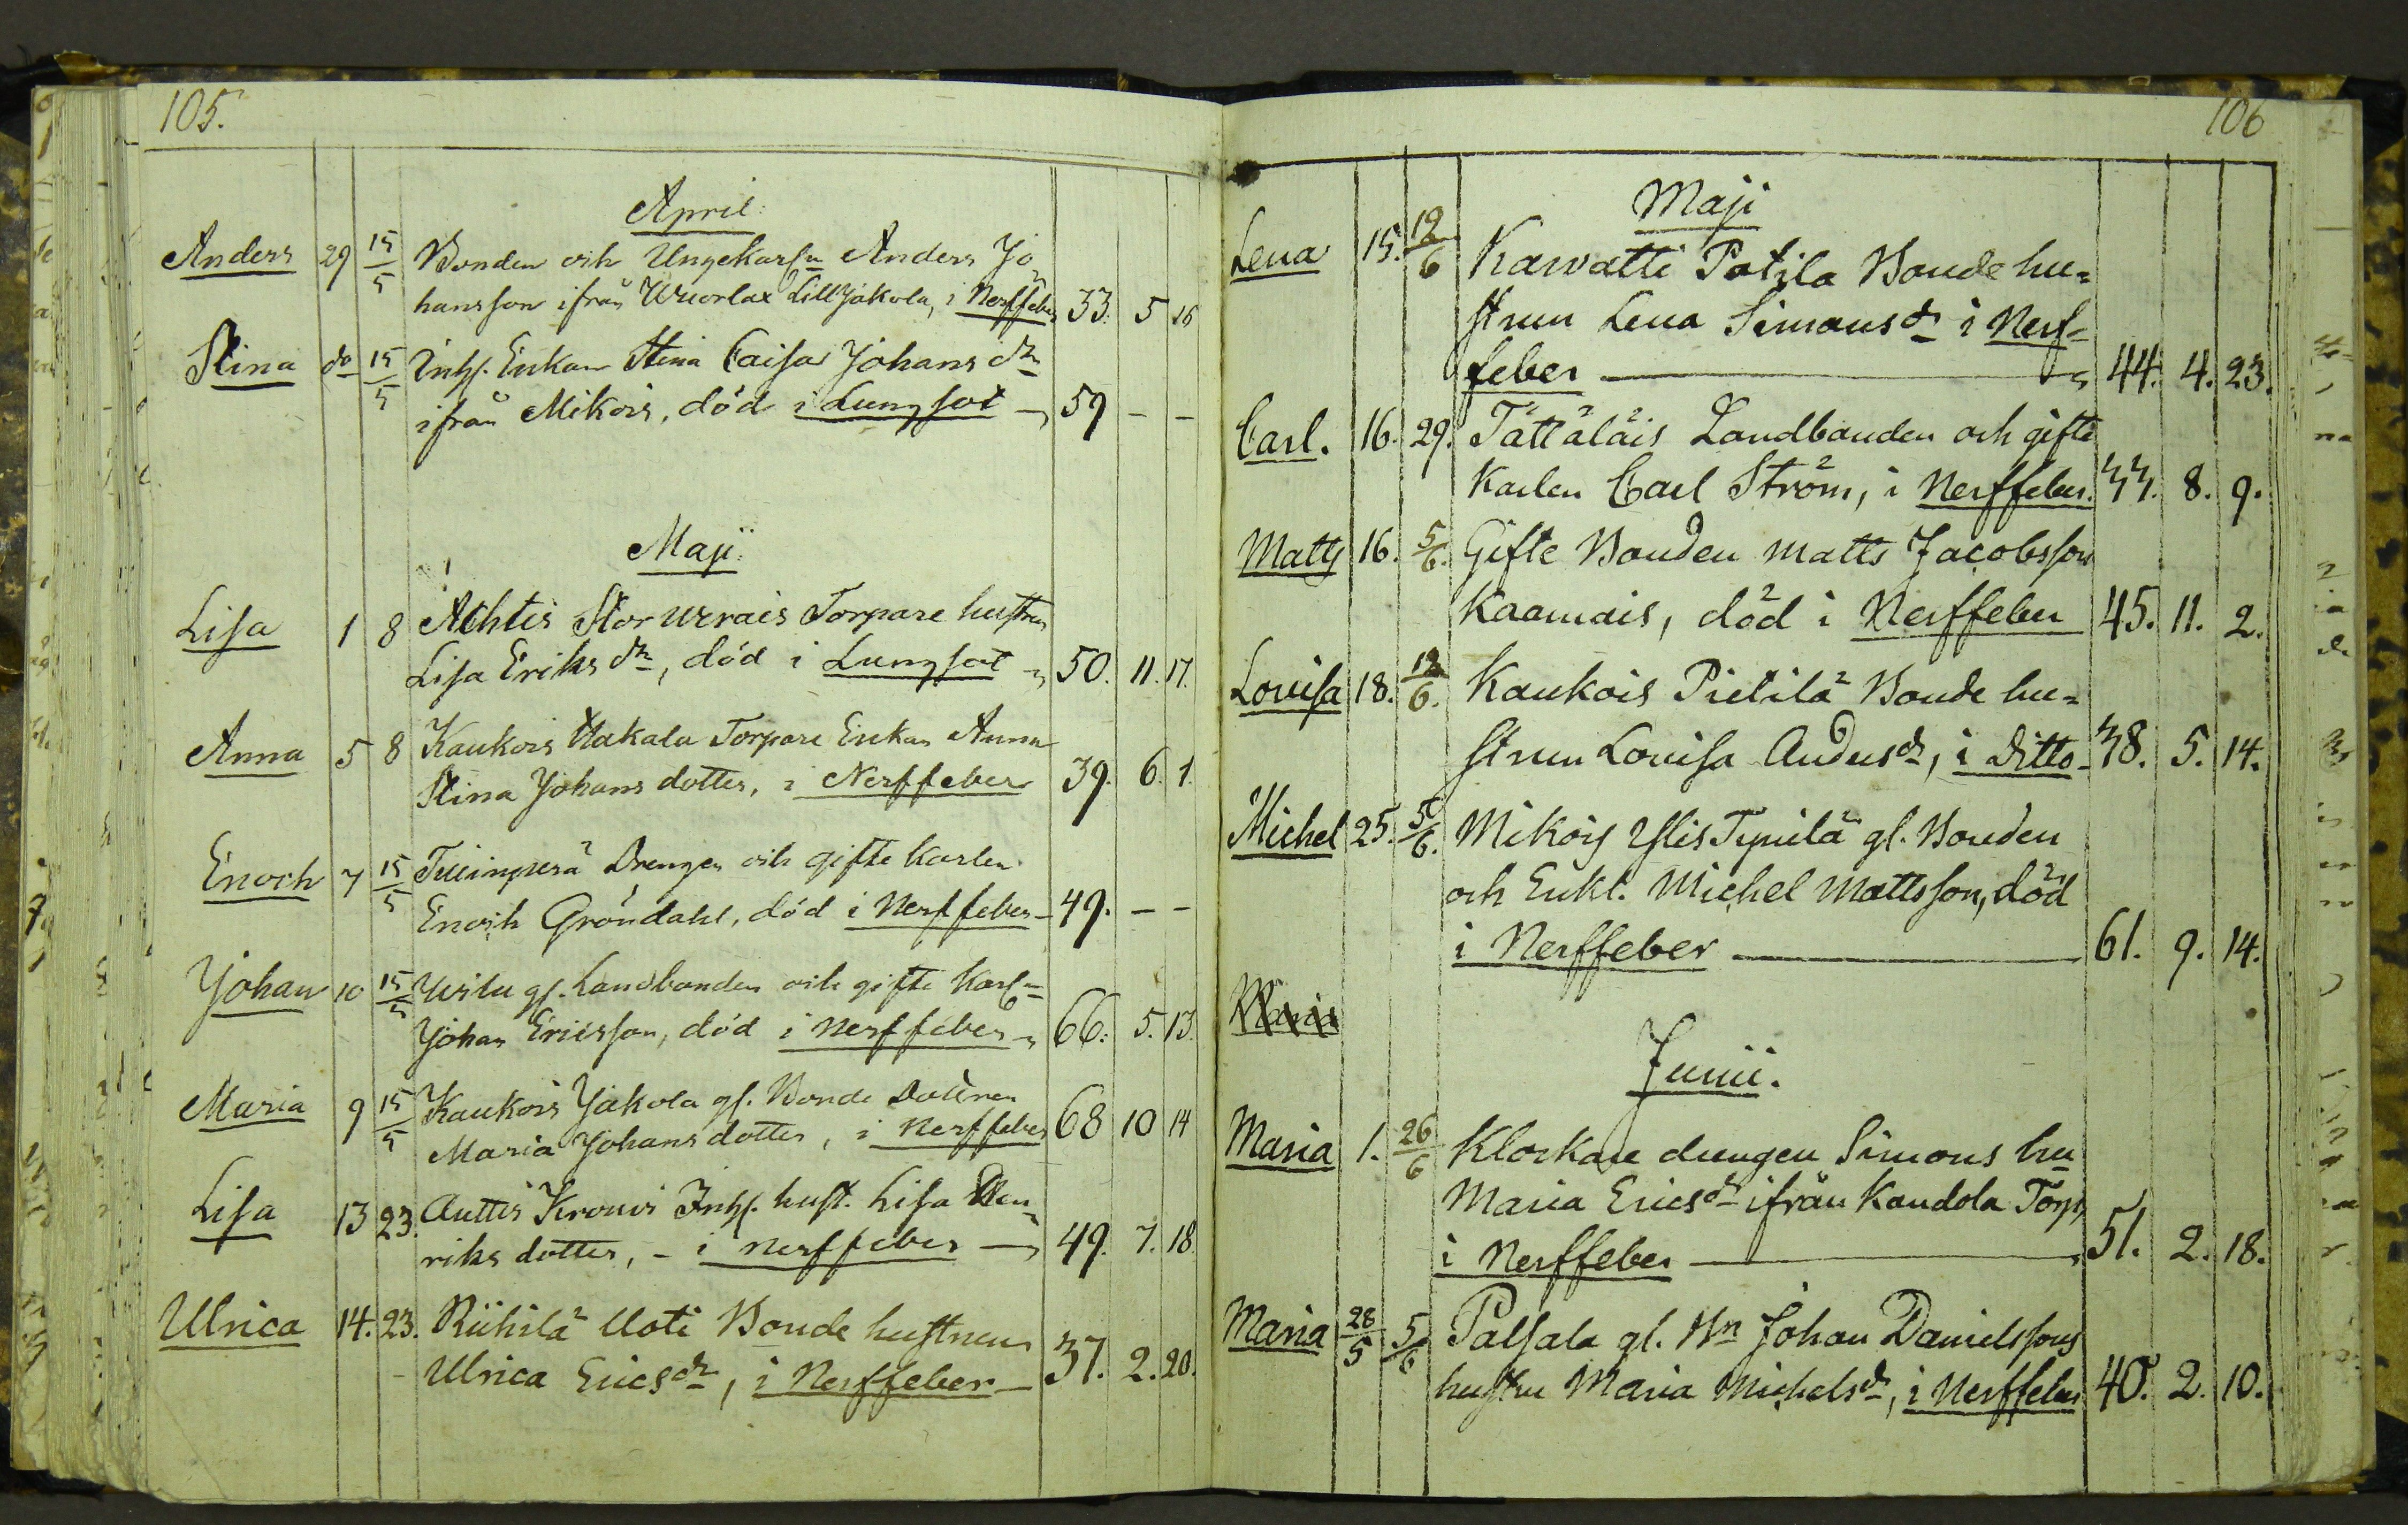 105.
April.
Anders 29 15/5 Bonden och Ungekarln Anders Jo-
hansson ifrån Wuorlax LillJakola, i Nerffeber 33. 5 16
Stina do 15/5 Inhs. Enkan Stina Caisa Johans dr
ifrån Mikois, död i Lungsot 59 - -
Maji.
Lisa 1 8 Achtis Stor Urais Torpare hustru
Lisa Eriks dr, död i Lungsot 50. 11. 17.
Anna 5 8 Kaukois Hakala Torpare Enkan Anna
Stina Johans dotter, i Nerffeber 39. 6. 1.
Enoch 7 15/5 Drengen och gifte Karlen
Enoch Gröndahl, död i Nerffeber - 49. - -
Johan 10 15/5 gl. Landbonden och gifte Karln
Johan Ericsson, död i Nerffeber 66. 5. 13.
Maria 9 15/5 Kaukois Jakola gl. Bonde Dottren
Maria Johans dotter, i Nerffeber 68 10 14
Lisa 13 23. Auttis Krouvi Inhs. hust. Lisa Hen-
riks dotter, - i Nerffeber 49. 7. 18.
Ulrica 14. 23. Riihilä Uoti Bonde hustrun
Ulrica Ericsdr, i Nerffeber - 37. 2. 20.
106
Maji
Lena 15. 12/6 Karvatti Potila Bonde hu-
strun Lena Simonsdr i Nerf-
feber 44. 4. 23.
Carl. 16. 29. Tättäläis Landbonden och gifte
Karlen Carl Ström, i Nerffeber. 44. 8. 9.
Matts 16. 5/6. Gifte Bonden Matts Jacobsson
Kaamais, död i Nerffeber 45. 11. 2.
Lovisa 18. 12/6. Kaukois Pietilä Bonde hu-
strun Lovisa Andersdr, i Ditto - 38. 5. 14.
Michel 25. 5/6. Mikois Yllis Typilä gl. Bonden
och Enkl. Michel Mattsson, död
i Nerffeber 61. 9. 14.
Maria
Junii.
Maria 1. 26/6 Klockare drengen Simons hu
Maria Ericsdr ifrån Kandola Torp
i Nerffeber 51. 2. 18.
Maria 28/5 5/6 Palsala gl. Bn Johan Danielssons
hustru Maria Michelsdr, i Nerffeber 40. 2. 10.